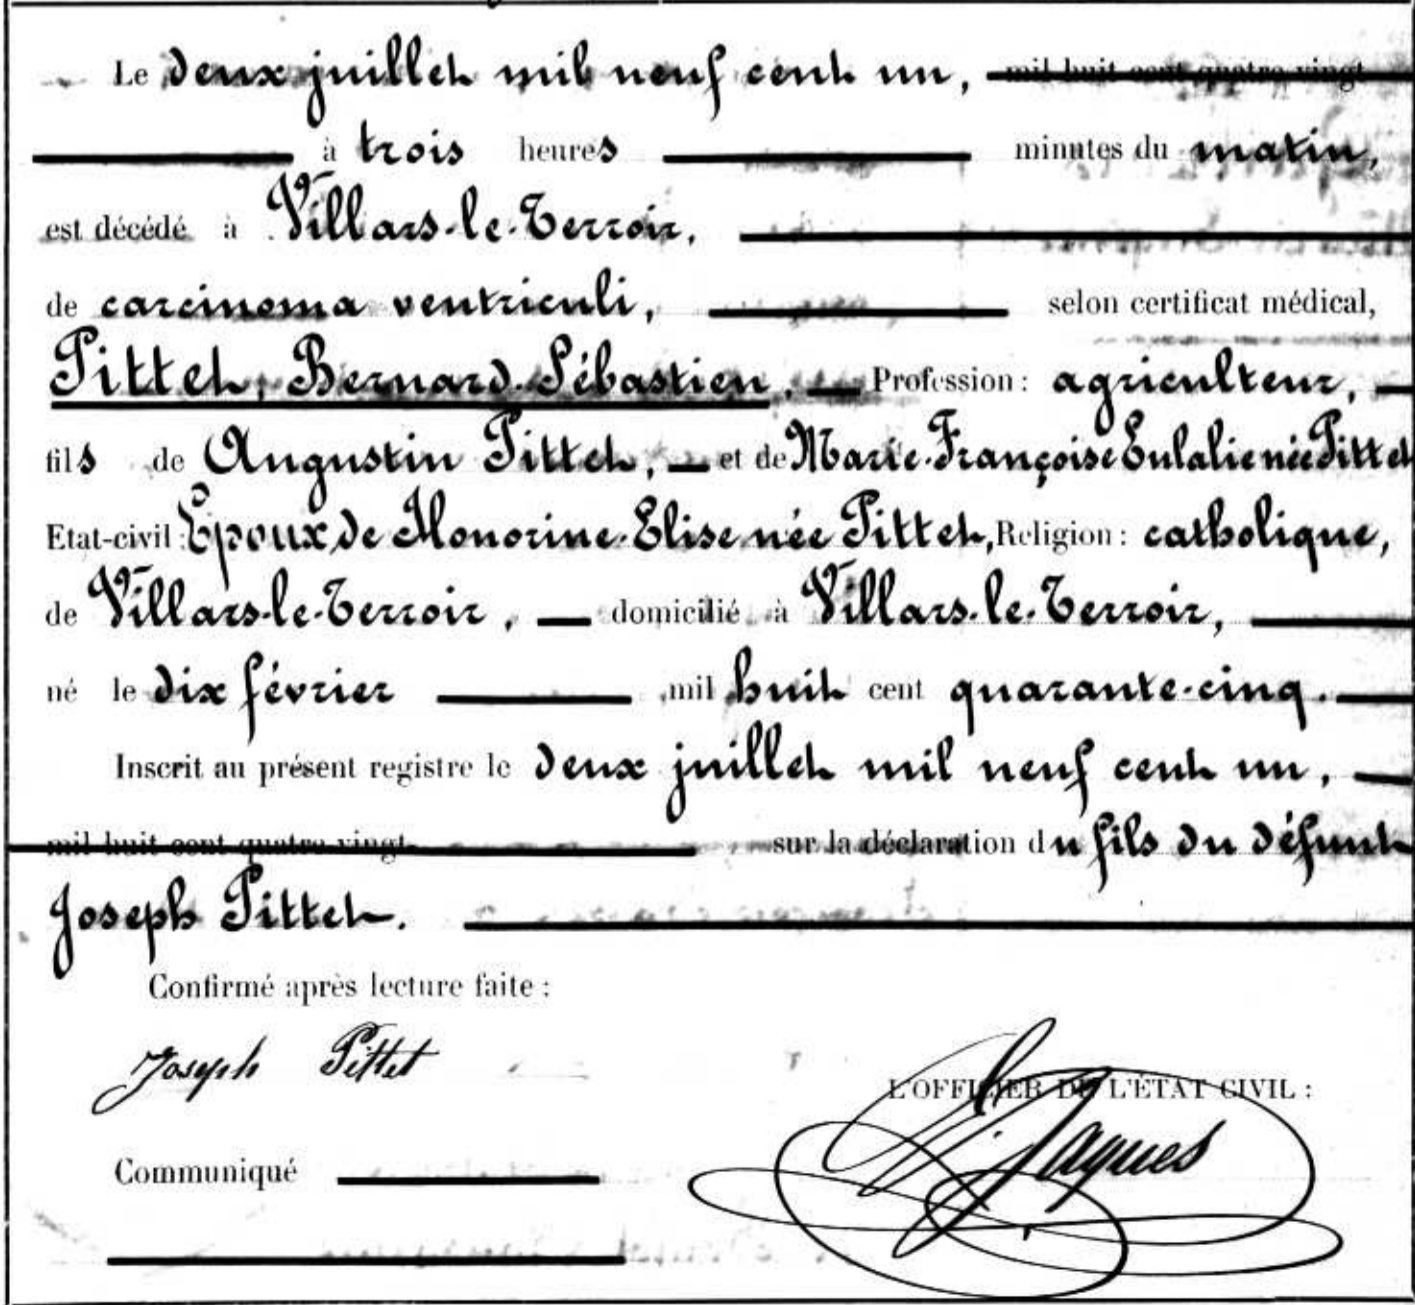 Le deux juillet mil neuf cent un, mil huit cent quatre vingt
à trois heures minutes du matin,
est décédé à Villars-le-Terroir,
de carcinoma ventriculi, selon certificat médical,
Pittet, Bernard-Sébastien, Profession: agriculteur,
fils de Augustin Pittet, et de Marie-Françoise Eulalie née Pittet
Etat-civil: Epoux de Honorine-Elise née Pittet, Religion: catholique,
de Villars-le-Terroir, domicilié à Villars-le-Terroir,
né le dix février mil huit cent quarante-cinq.
Inscrit au présent registre le deux juillet mil neuf cent un,
mil huit cent quatre vingt sur la déclaration du fils du défunt
Joseph Pittet.
Confirmé après lecture faite:
Joseph Pittet
L'OFFICIER DE L'ÉTAT CIVIL:
Jaques
Communiqué